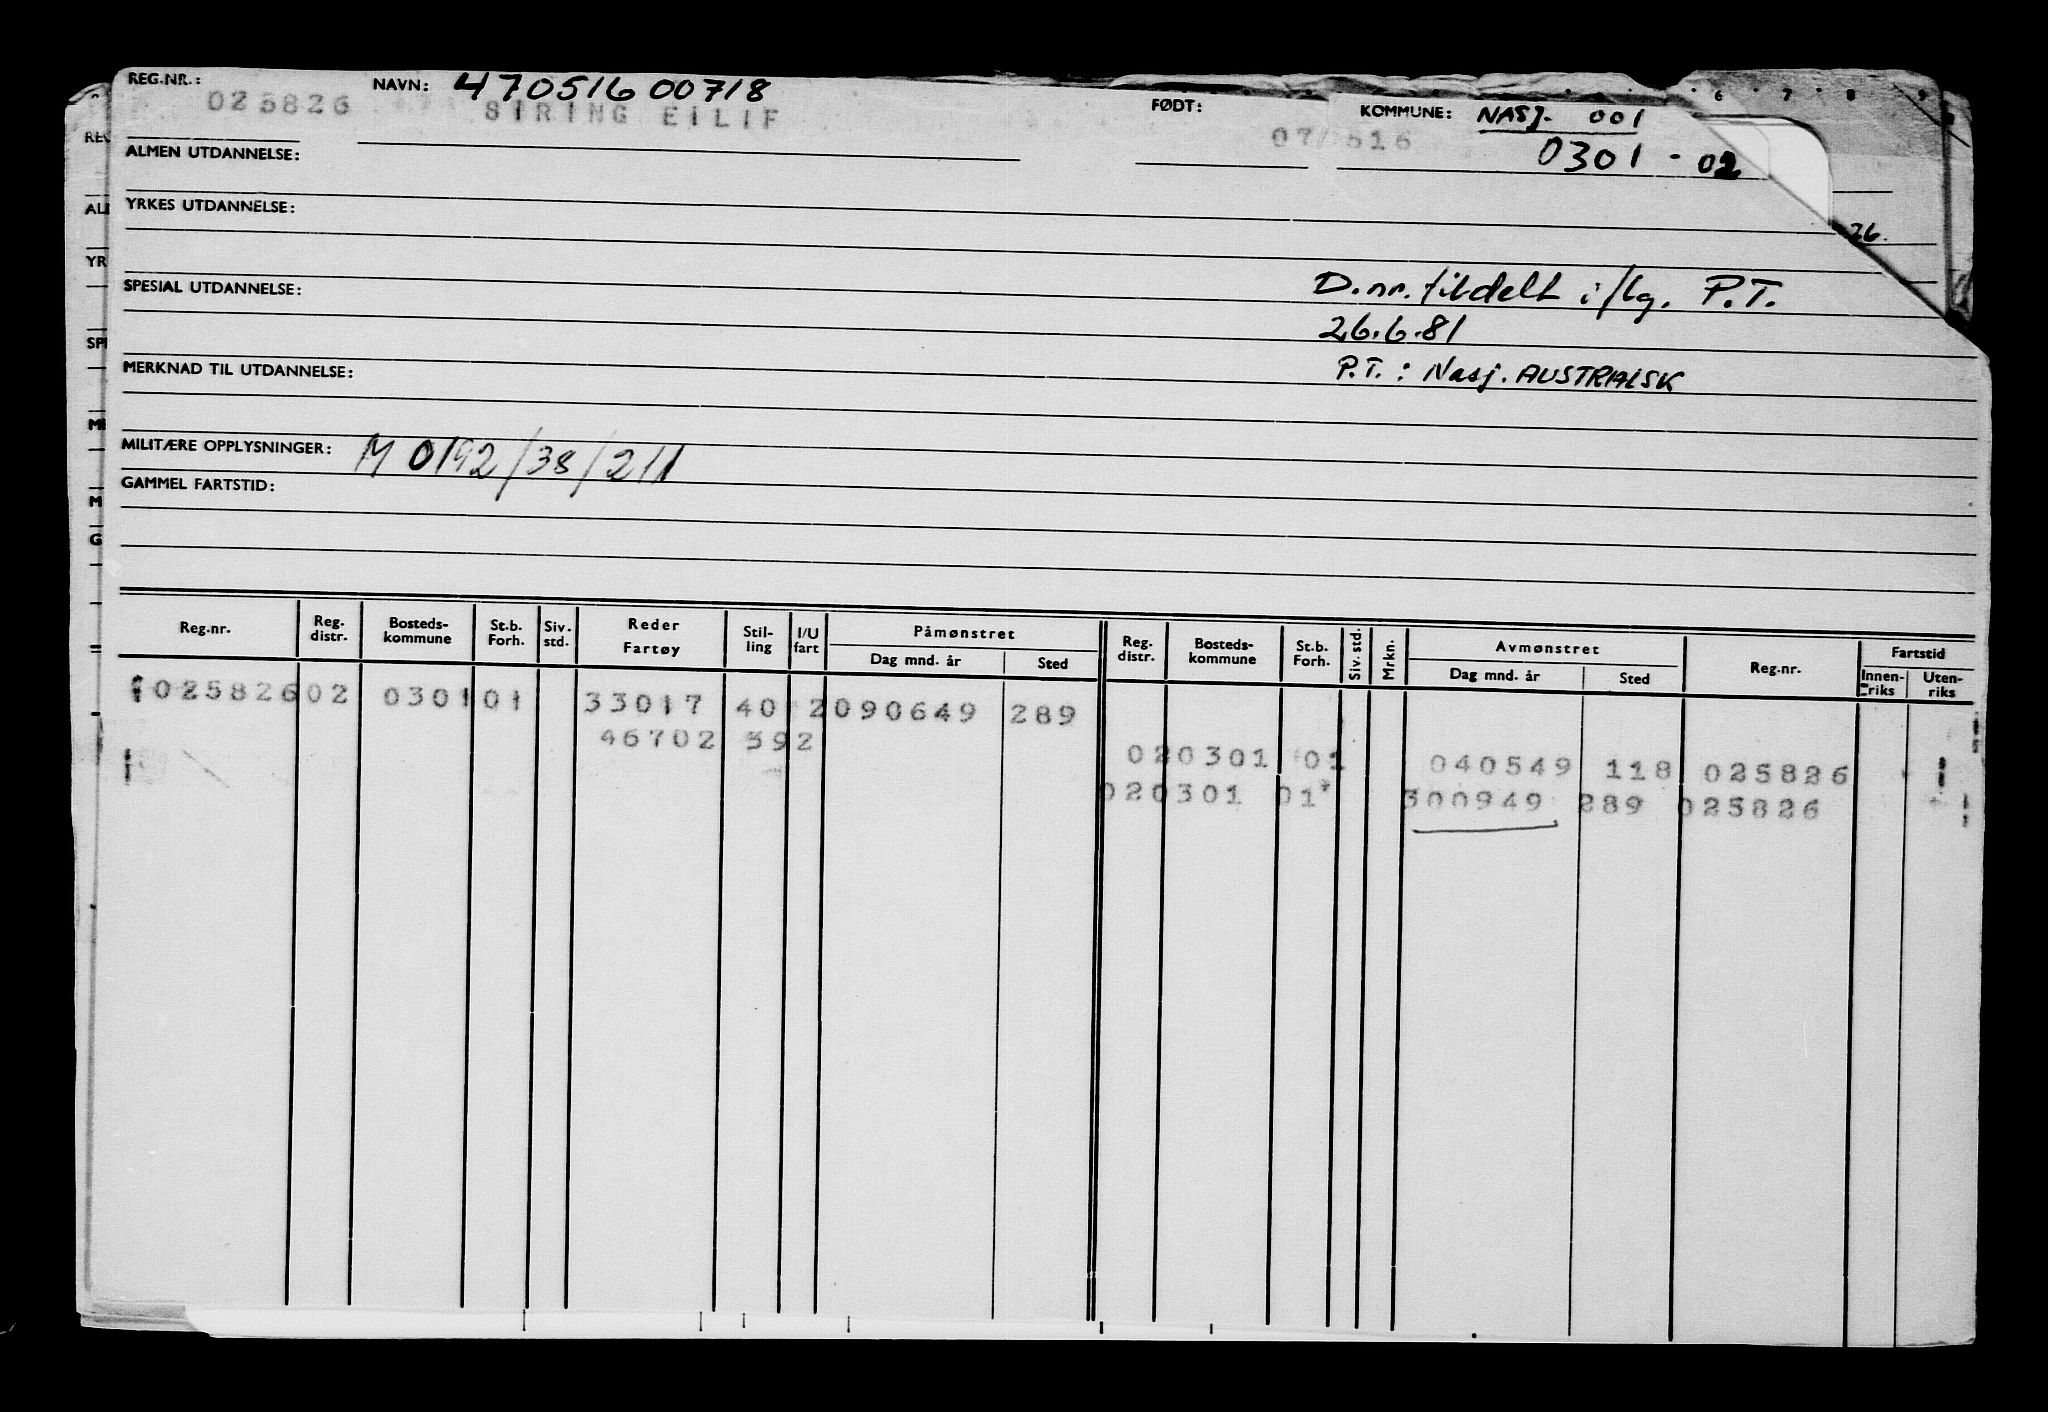 REG.NR.: 025826 NAVN: 47051600718 FØDT: KOMMUNE: NASJ. 001
SIRING EILIF 07 516 0301 - 02
ALMEN UTDANNELSE:
YRKES UTDANNELSE:
26.
SPESIAL UTDANNELSE: D.nr. tildelt i flg. P.T.
26.6.81
MERKNAD TIL UTDANNELSE: P.T.: Nasj. AUSTRIALSK
MILITÆRE OPPLYSNINGER: M 0192/38/211
GAMMEL FARTSTID:
Reg.nr. Reg. distr. Bosteds-kommune St.b. Forh. Siv. std. Reder Fartøy Stil-ling I/U fart Påmønstret Dag mnd. år Sted Reg. distr. Bosteds-kommune St.b. Forh. Siv. std. Mrkn. Avmønstret Dag mnd. år Sted Reg.nr. Fartstid Innen-riks Uten-riks
025826 02 0301 01 33017 40 2 090649 289
46702 392
02 0301 01 040549 118 025826
02 0301 01 300949 289 025826